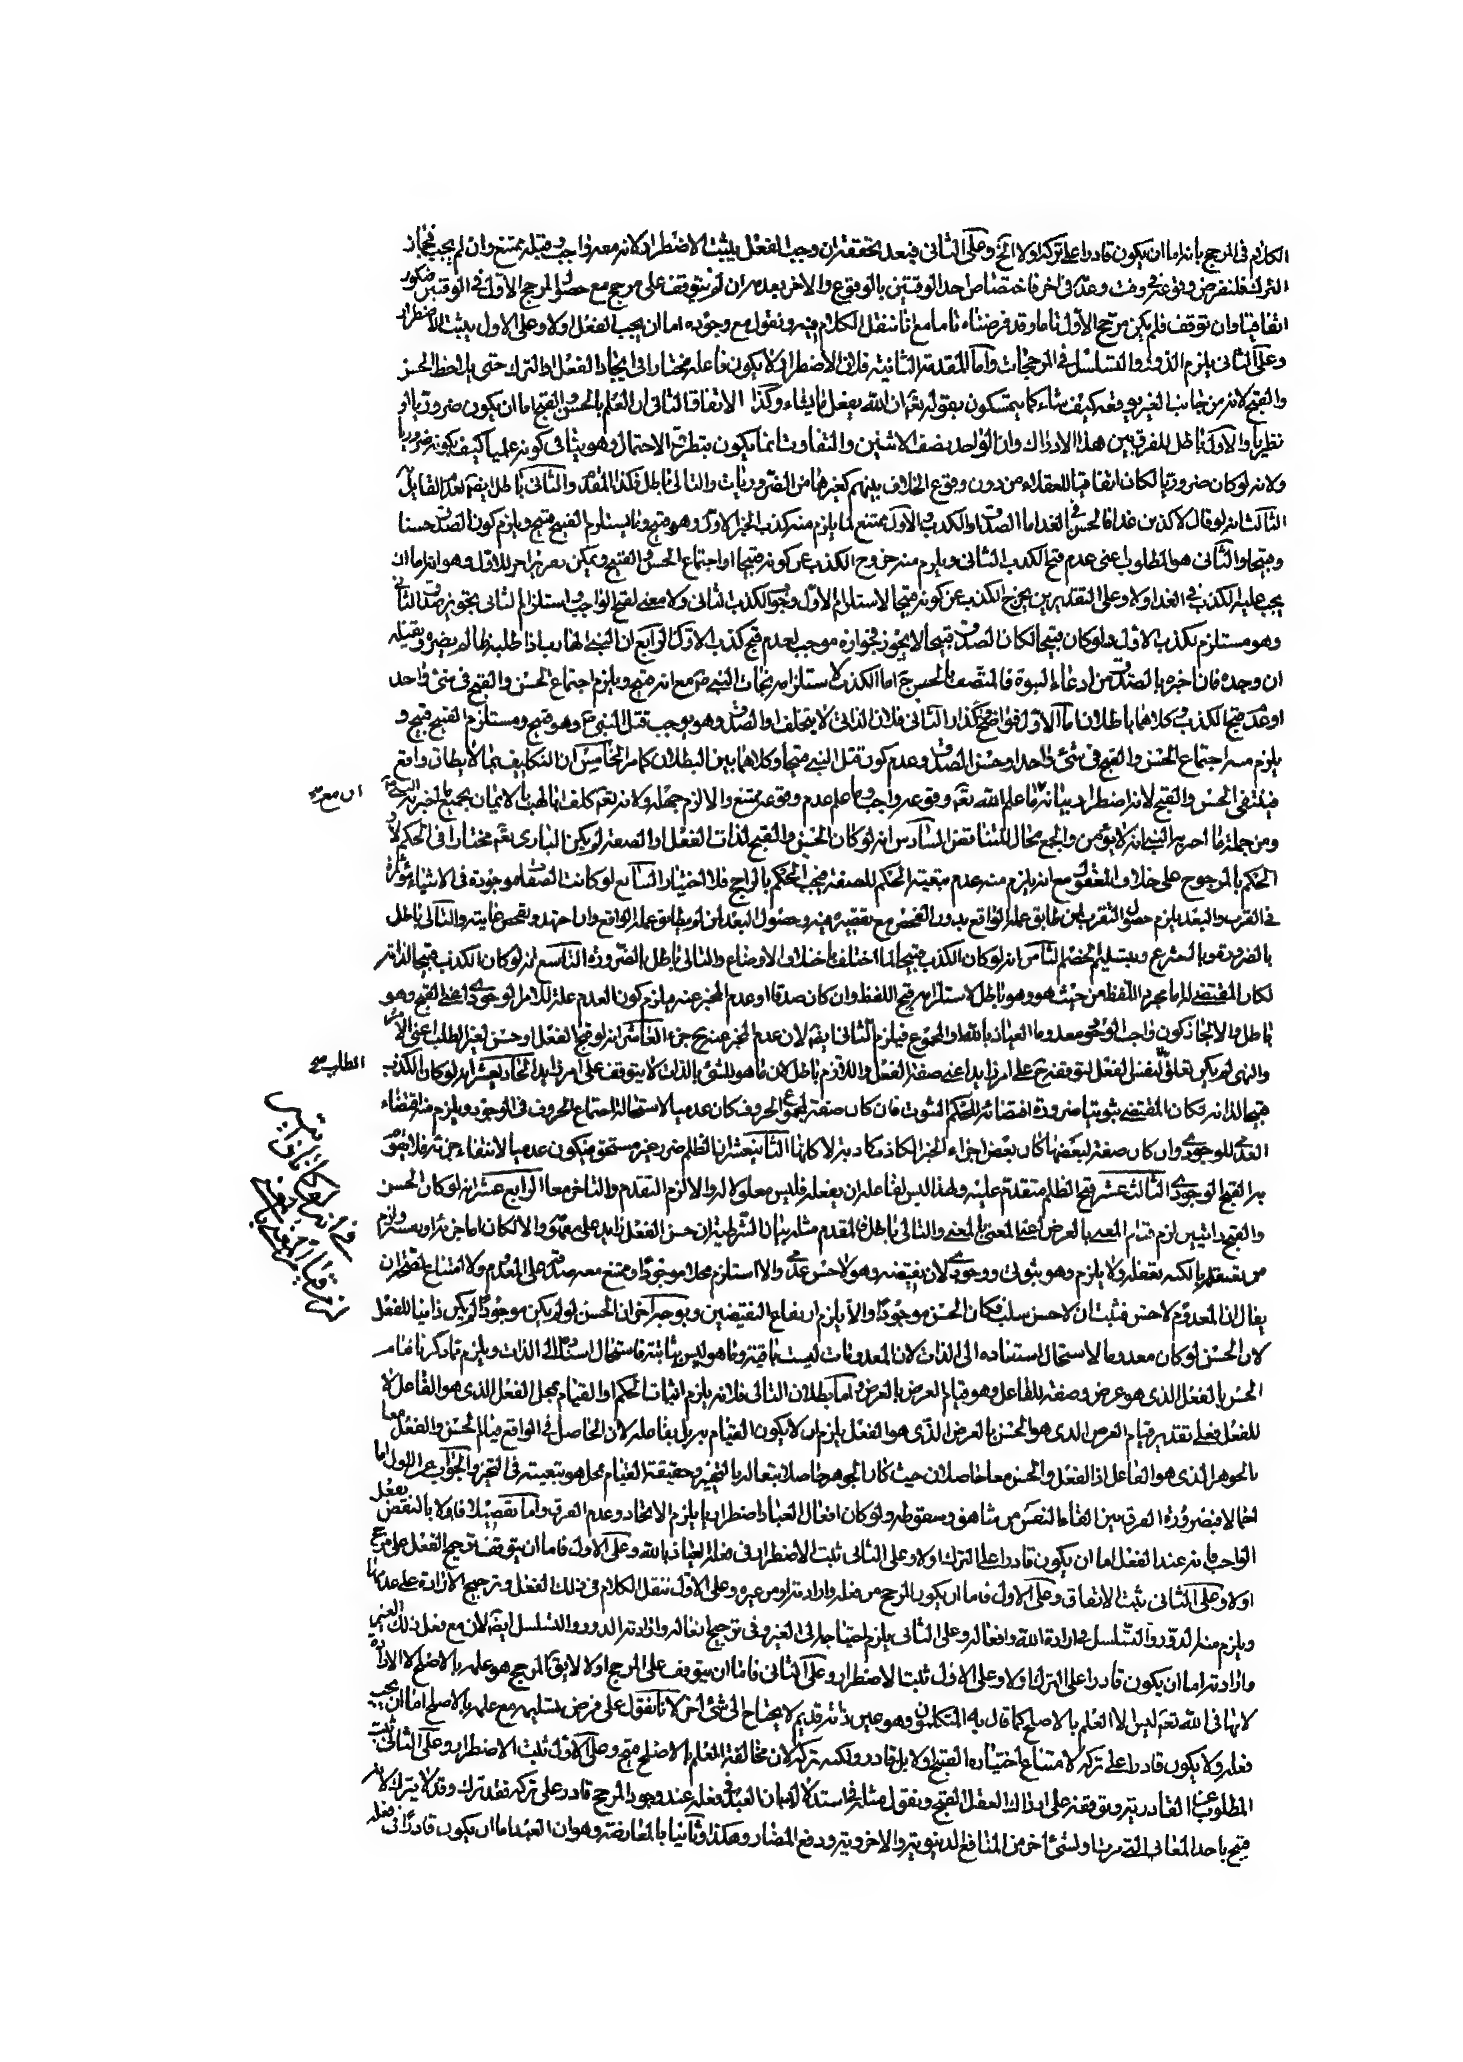 الكلام فى المرجح بانه اما ان يكون قادرا على تركه اولا الخ وعلى الثانى فبعد تحققه ان وجب الفعل يثبت الاضطرار لانه معه واجب وقبله ممتنع وان لم يجب فجاز
الترك فلنفرض وقوعه فى وقت وعدمه فى اخر فاختصاص احد الوقتين بالوقوع والاخر بعدمه ان لم يتوقف على مرجح مع حصول المرجح الاول فى الوقتين فيكون
اتفاقيا وان توقف فلم يكن مرجح الاول تاما وقد فرضناه تاما مع انا ننقل الكلام فيه ونقول مع وجوده اما ان يجب الفعل اولا وعلى الاول يثبت الاضطرار
وعلى الثانى يلزم الدور والتسلسل فى المرجحات واما المقدمة الثانية فلان الاضطرار لا يكون فاعله مختارا فى ايجاد الفعل والترك حتى يلاحظ الحسن
والقبح لانه من جانب الغير يوقعه كيف شاء كما يتمسكون بقوله تعم ان الله يفعل ما يشاء وكذا الاتفاقى الثانى ان العلم بالحسن والقبح اما ان يكون ضروريا او
نظريا والاول باطل للفرق بين هذا الادراك وان الواحد نصف الاثنين والتفاوت انما يكون بتطرق الاحتمال وهو ينافى كونه علميا كيف يكونه ضروريا
ولانه لو كان ضروريا لكان اتفاقيا للعقلاء من دون وقوع الخلاف بينهم كغيرها من الضروريات والتالى باطل فكذا المقدم والثانى باطل ايضا لعدم القايل
الثالث انه لو قال لاكذبن غدا فالحسن فى الغد اما الصدق او الكذب والاول ممتنع لما يلزم منه كذب الخبر الاول وهو قبيح وما يستلزم القبيح قبيح ويلزم كون الصدق حسنا
وقبيحا والثانى هو المطلوب اعنى عدم قبح الكذب الثانى ويلزم منه خروج الكذب عن كونه قبيحا او اجتماع الحسن والقبح ويمكن تقريره اخر للاول وهو انه اما ان
يجب عليه الكذب فى الغد اولا وعلى التقديرين يخرج الكذب عن كونه قبيحا لاستلزام الاول وجوب الكذب الثانى ولا معنى لقبح الواجب واستلزام الثانى تجويز صدق الثانى
وهو مستلزم بكذب الاول ولو كان قبيحا لكان الصدق قبيحا لا يجوز فجوازه موجب لعدم قبح كذب الاول الرابع ان النبى الهارب اذا طلبه ظالم يضره ويقتله
ان وجده فان اخبره بالصدق من ادعاء النبوة فالمتصف بالحسن ح اما الكذب لاستلزامه نجات النبى ص مع انه قبيح ويلزم اجتماع الحسن والقبح فى شئ واحد
او عدم قبح الكذب وكلاهما باطلان اما الاول فواضح وكذا الثانى فلان الذاتى لا يتخلف او الصدق وهو يوجب قتل النبى ص وهو قبيح ومستلزم القبيح قبيح و
يلزم منه اجتماع الحسن والقبح فى شئ واحد او حسن الصدق وعدم كون قتل النبى قبيحا وكلاهما بين البطلان كما مر الخامس ان التكاليف بما لا يطاق واقع
فينتفى الحسن والقبح لانه اضطرار بيانه ما علم الله تعم وقوعه واجب وما علم عدم وقوعه ممتنع والا لزم جهله ولانه تعم كلف ابا لهب بالايمان بجميع ما اخبر به النبى
ومن جملة ما اخبر به النبى انه لا يؤمن والجمع محال للتناقض السادس انه لو كان الحسن والقبح لذات الفعل او الصفة لم يكن البارى تعم مختارا فى الحكم لان
الحكم بالمرجوح على خلاف المعقول مع انه يلزم منه عدم تبعية الحكم للصفة فيجب الحكم بالراجح فلا اختيار السابع لو كانت الصفات موجودة فى الاشياء مؤثرة
فى القرب والبعد يلزم حصول التقرب لمن طابق عمله الواقع بدون الفحص مع تقصيره فيه وحصول البعد لمن لم يطابق عمله الواقع وان اجتهد وتفحص غايته والتالى باطل
بالضرورة وبالشرع وبتسليم الخصم الثامن انه لو كان الكذب قبيحا لما اختلف باختلاف الاوضاع والتالى باطل بالضرورة التاسع انه لو كان الكذب قبيحا لذاته
لكان المقتضى له اما مجرد اللفظ من حيث هو هو وهو باطل لاستلزامه قبح اللفظ وان كان صدقا او عدم المخبر عنه فيلزم كون العدم علة للامر الوجودى اعنى القبح وهو
باطل والا لجاز كون واجب الوجود معدوما العياذ بالله او المجموع فيلزم الثانى ايضا لان عدم المخبر عنه ح جزء العاشر انه لو قبح الفعل او حسن لغير الطلب اعنى الامر
والنهى لم يكن تعلق لنفس الفعل لتوقفه ح على امر زايد اعنى صفة الفعل واللازم باطل لان ما هو للشئ بالذات لا يتوقف على امر زايد الحاديعشر انه لو كان الكذب
قبيحا لذاته لكان المقتضى ثبوتيا ضرورة اقتضائه للحكم الثبوت فان كان صفة لمجموع الحروف كان عدميا لاستحالة اجتماع الحروف فى الوجود ويلزم منه اقتضاء
العدمى للوجودى وان كان صفة لبعضها كان بعض اجزاء الخبر الكاذب كاذبة لا كلها الثانيعشر ان الظلم ضرر غير مستحق فيكون عدميا لانتفاء جزئه فلا يحق
به القبح الوجودى الثالث عشر قبح الظلم متقدم عليه ولهذا ليس لفاعله ان يفعله فليس معلولا له والا لزم التقدم والتاخر معا الرابع عشر انه لو كان الحسن
والقبح ذاتيين لزم قيام العرض بالعرض اعنى المعنى بالمعنى والتالى باطل فالمقدم مثله بيان الشرطية ان حسن الفعل زايد على مفهومه والا لكان اما جزئه او يستلزم
من تعقله بالكنه تعقله ولا يلزم وهو ثبوتى ووجودى لان نقيضه وهو لا حسن عدمى والا استلزم محلا موجودا وممتنع معه صدقه على المعدوم ولا امتناع لضحة ان
يقال ان المعدوم لا حسن فثبت ان لا حسن سلب فكان الحسن موجودا والا يلزم ارتفاع النقيضين وبوجه اخر ان الحسن لو لم يكن موجودا لم يكن ذاتيا للفعل
لان الحسن لو كان معدوما لاستحال استناده الى الذات لان المعدومات ليست ذاتية وما هو ليس بثابتة فاستحال استناده الى الذات ويلزم مما ذكرنا قيام
الحسن بالفعل الذى هو عرض وصفة للفاعل وهو قيام العرض بالعرض واما بطلان التالى فلانه يلزم اثبات الحكم او القيام بمحل الفعل الذى هو الفاعل لا
للفعل فعلى تقدير قيام العرض الذى هو الحسن بالعرض الذى هو الفعل يلزم ان لا يكون القيام به بل بفاعله لان الحاصل فى الواقع قيام الحسن والفعل معا
بالجوهر الذى هو الفاعل اذ الفعل والحسن معا حاصلان حيث كان الجوهر حاصلا تبعا له بالتحيز وحقيقة القيام بمحل هو بتبعيته فى التحيز والجواب عن الاول اما
اجمالا فبضرورة الفرق بين القاء النفس من شاهق وسقوطه ولو كان افعال العباد اضطراريا يلزم الاتحاد وعدم الفرق واما تفصيلا فاولا بالنقض بفعل
الواجب فانه عند الفعل اما ان يكون قادرا على الترك اولا وعلى الثانى ثبت الاضطرار فى فعله العياذ بالله وعلى الاول فاما ان يتوقف ترجيح الفعل على مرجح
اولا وعلى الثانى يثبت الاتفاق وعلى الاول فاما ان يكون المرجح من فعله وارادته او من غيره وعلى الاول ننقل الكلام فى ذلك الفعل وترجيح الارادة على عدمها
ويلزم منه الدور والتسلسل فى ارادة الله وافعاله وعلى الثانى يلزم احتياجه الى الغير وفى ترجيح افعاله وارادته الدور والتسلسل ايضا لان مع فعل ذلك الغير
وارادته اما ان يكون قادرا على الترك اولا وعلى الاول ثبت الاضطرار وعلى الثانى فاما ان يتوقف على المرجح اولا لا يق المرجح هو علمه بالاصلح لا الارادة
لانها فى الله تعم ليس الا العلم بالاصلح كما قال به المتكلمون وهو عين ذاته قديم لا يحتاج الى شئ اخر لانا نقول على فرض تسليمه مع علمه بالاصلح اما ان يجب
فعله ولا يكون قادرا على تركه لامتناع اختياره القبيح اولا بل قادر ولكنه تركه لان مخالفة العلم بالاصلح قبيح وعلى الاول ثبت الاضطرار وعلى الثانى ثبت
المطلوب عن القادرية وتوقفه على ادراك العقل القبح ونقول مثله فى استدلالهم ان العبد فى فعله عند وجود المرجح قادر على تركه فقد ترك وقد لا يترك لانه
قبيح باحد المعانى التى مرت او لشئ اخر من المنافع الدنيوية والاخروية ودفع المضار وهكذا وثانيا بالمعارضة وهو ان العبد اما ان يكون قادرا فى فعله
الطلب صح